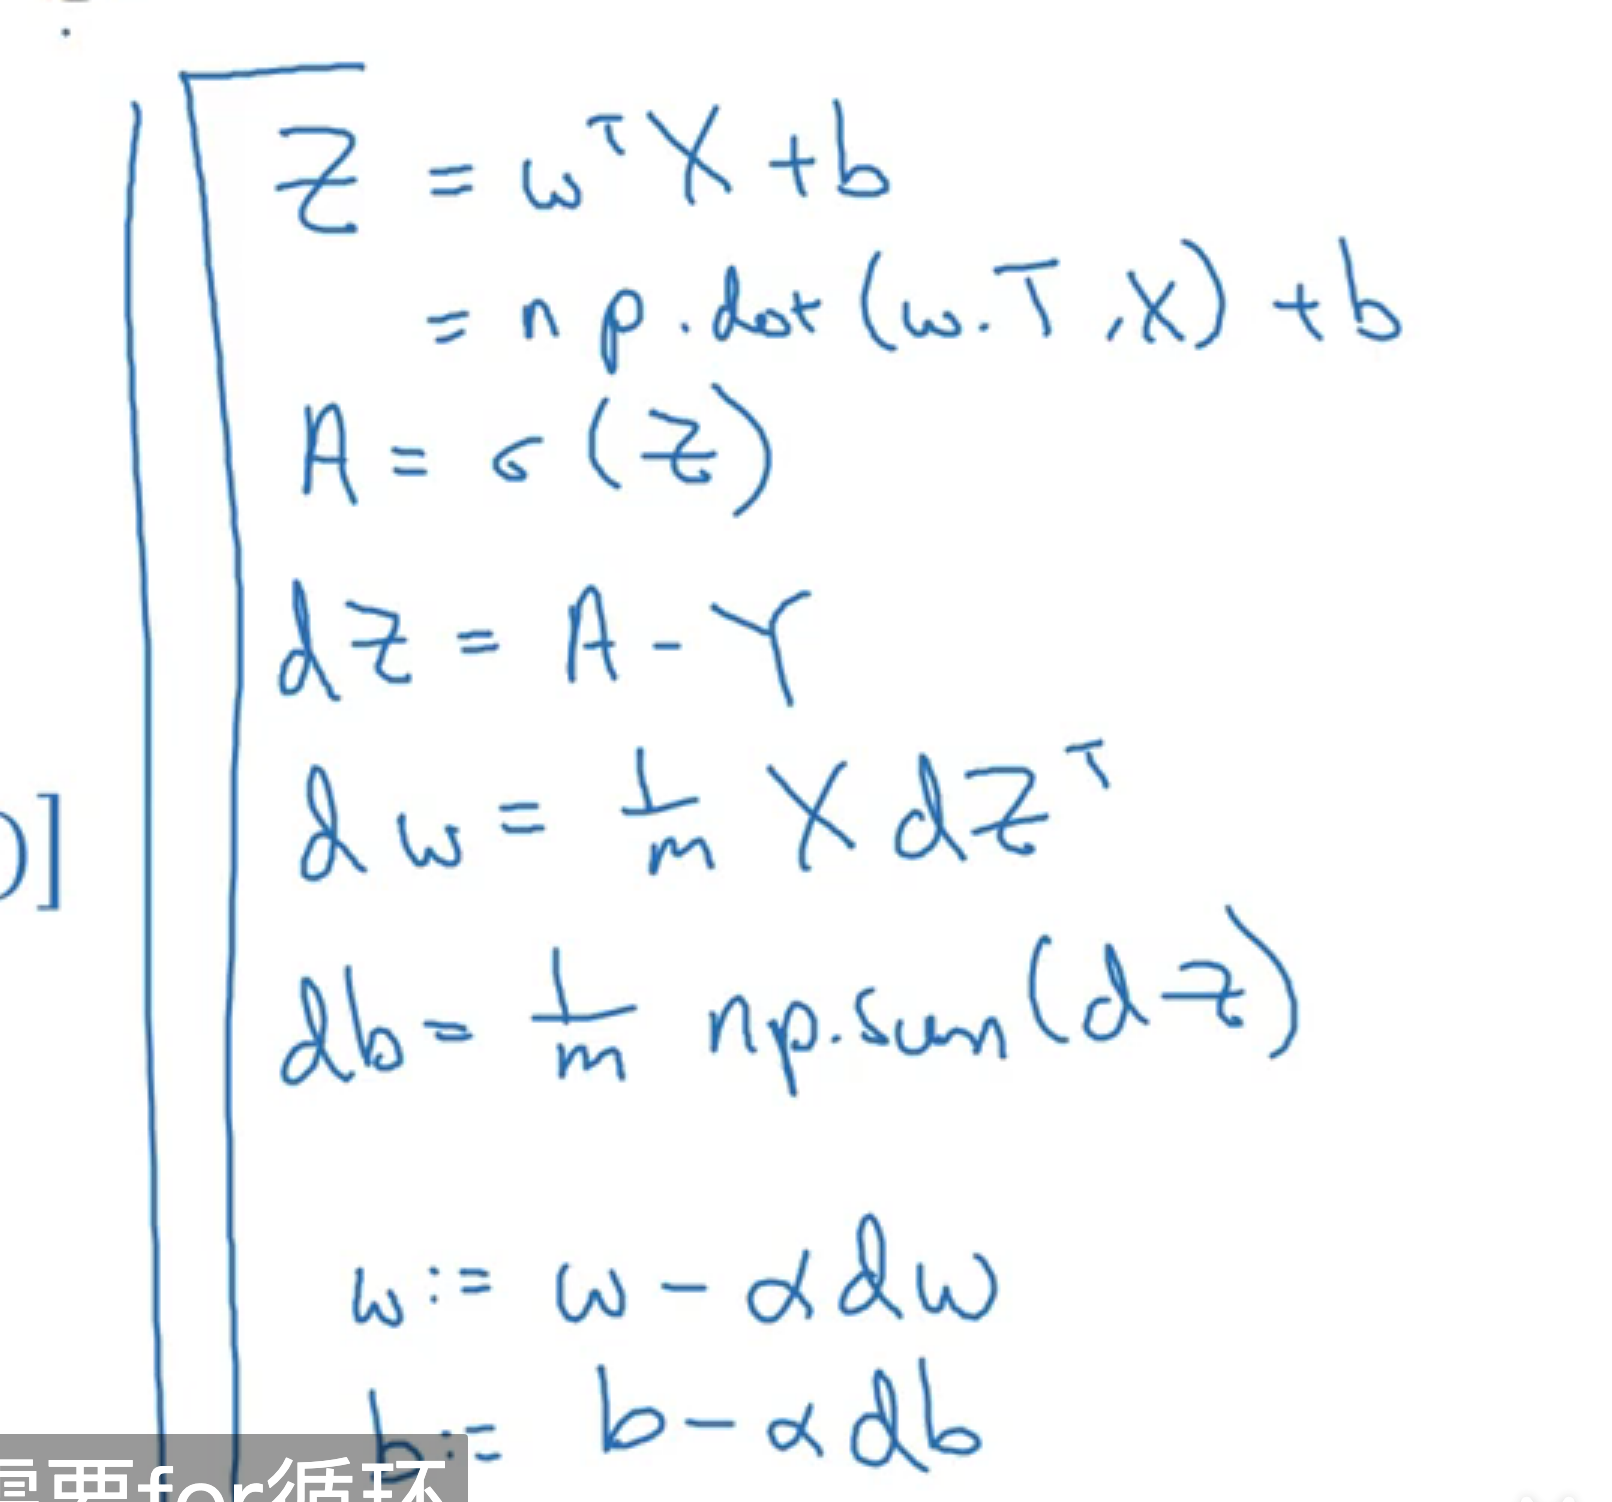 Z = wᵀX + b
= np.dot(w.T, X) + b
A = σ(Z)
dZ = A - Y
dw = 1/m X dZᵀ
)]
db = 1/m np.sum(dZ)
w := w - αdw
b := b - αdb
需要for循环